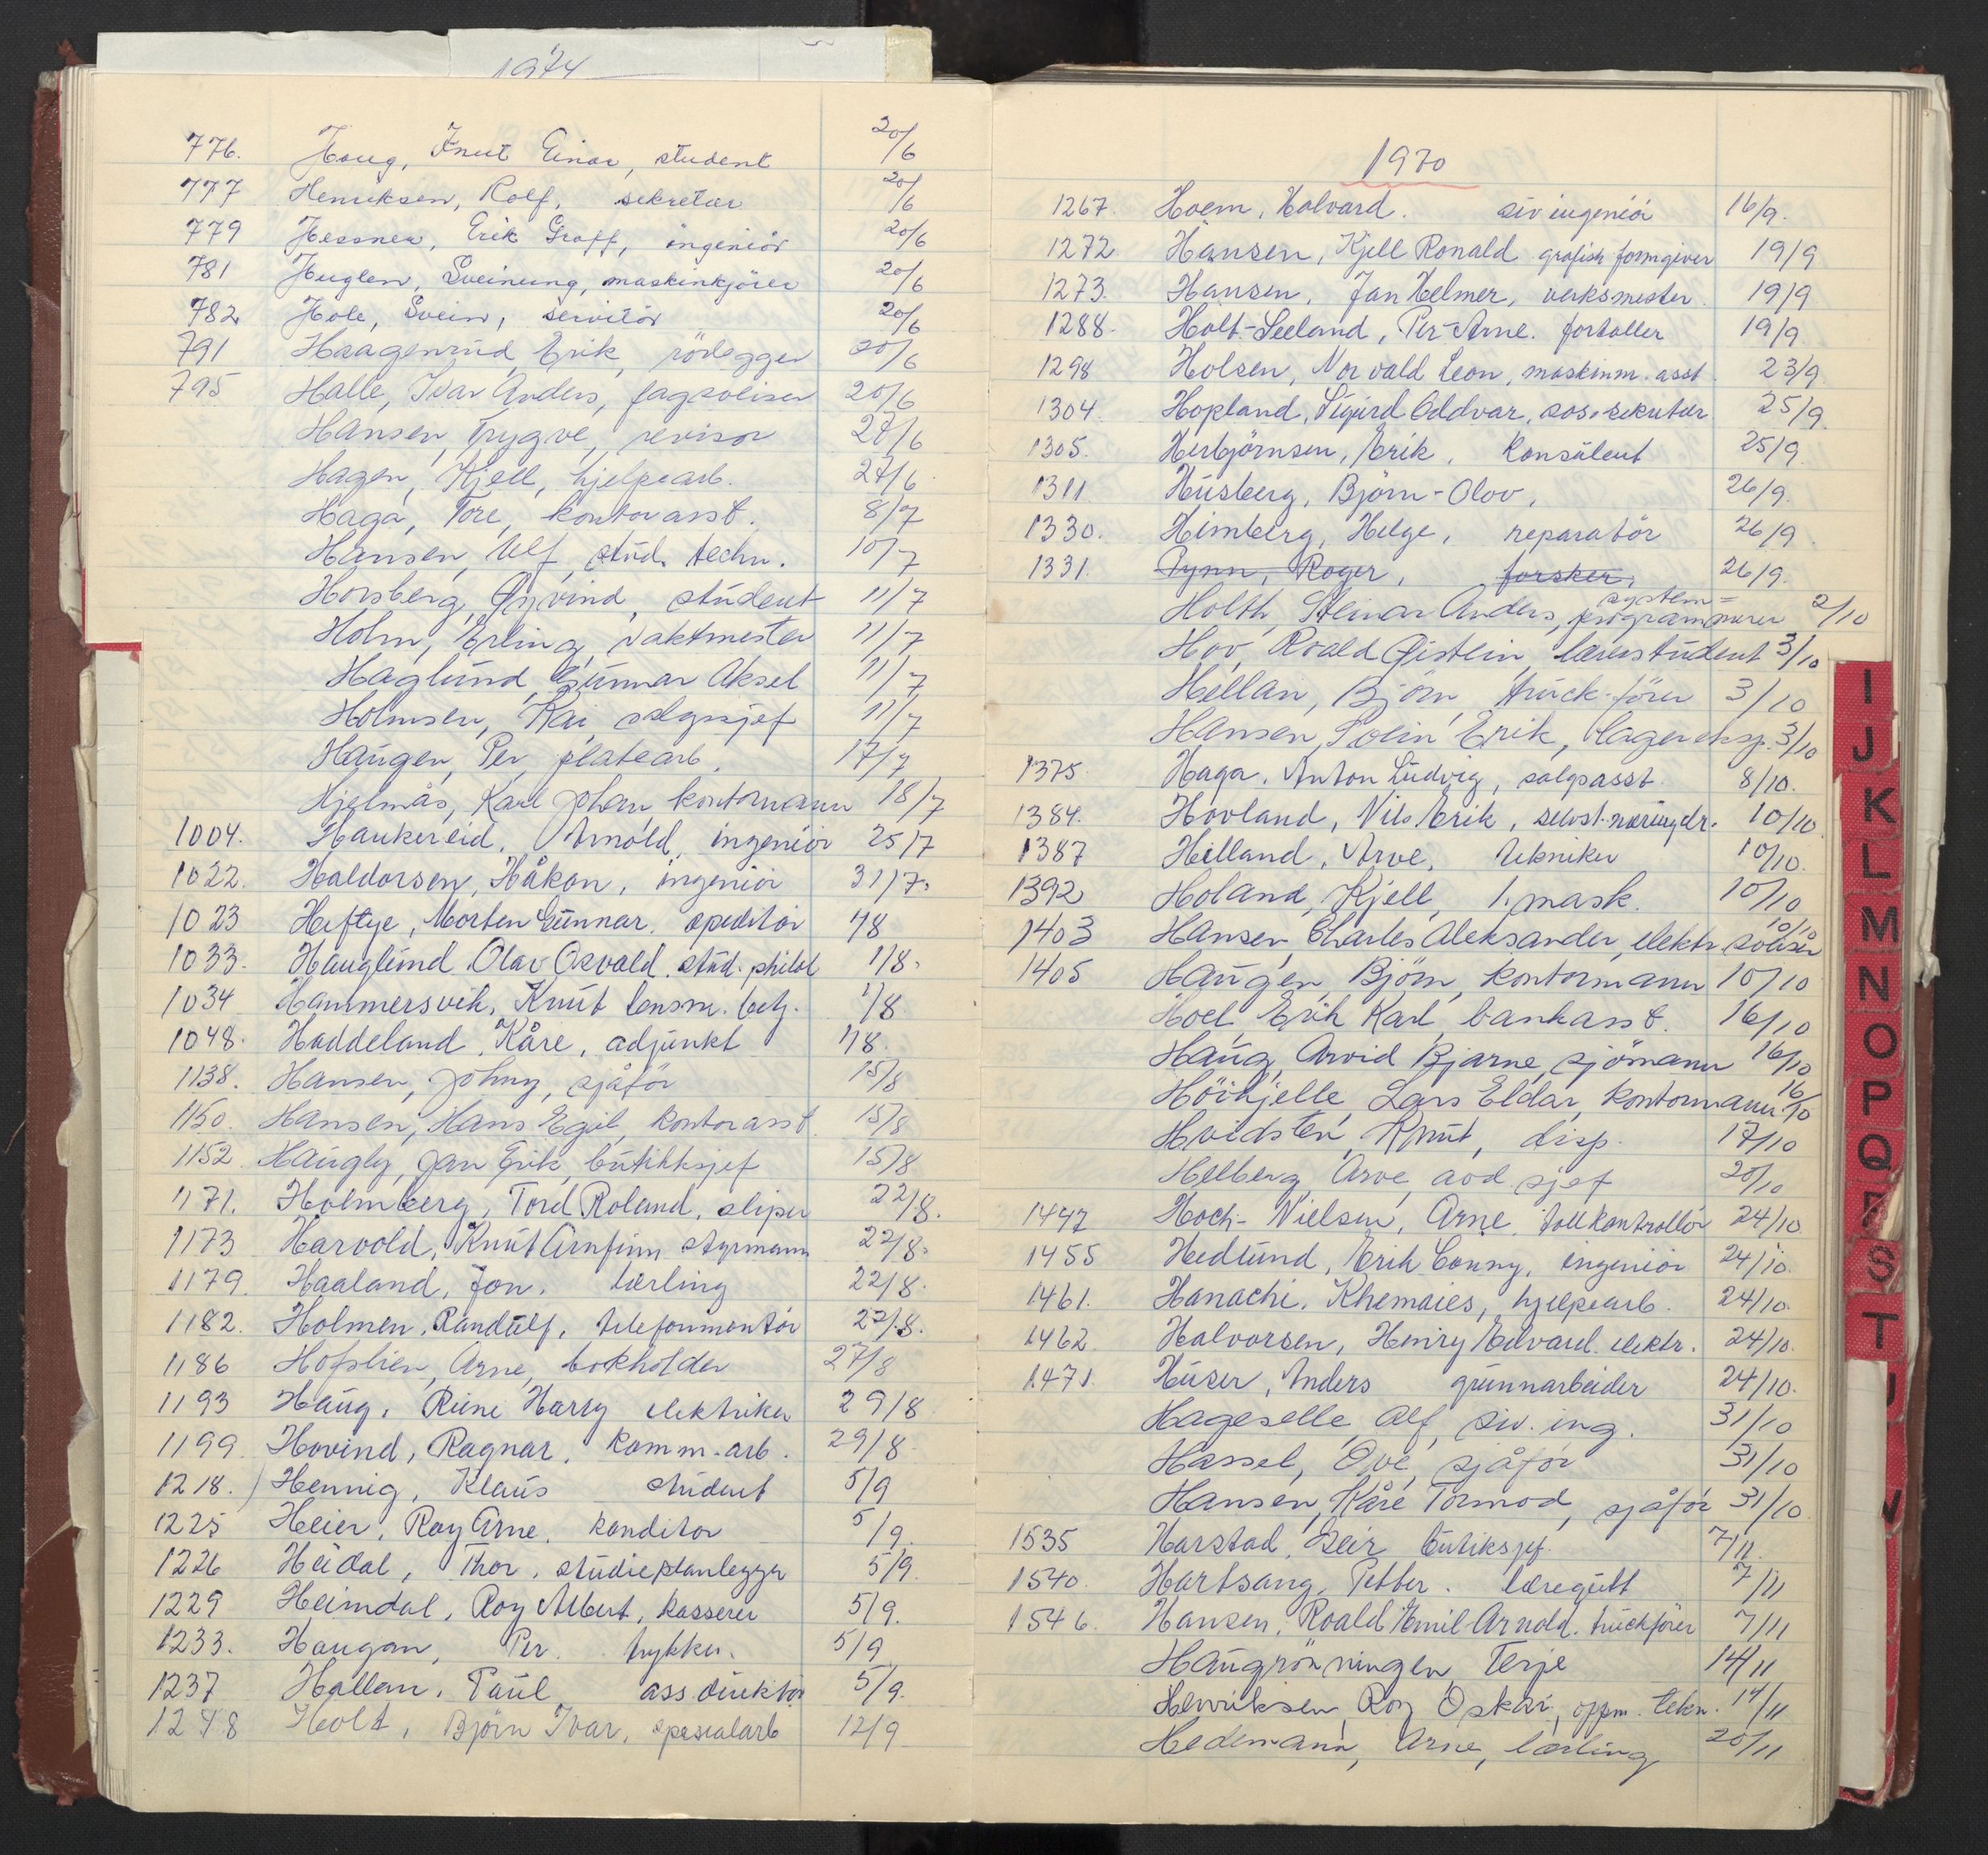 1974
776. Haug, Knut Einar, student 20/6
777 Henriksen, Rolf, sekretær 20/6
779 Hessner, Erik Graff, ingeniör 20/6
781 Huglen, Sveinung, maskinkjörer 20/6
782 Hole, Svein, servitör 20/6
791 Haagenrud, Erik, rörlegger 20/6
795 Halle, Ivar Anders, fagsoliser 20/6
Hansen, Trygve, revisor 27/6
Hagen, Kjell, hjelpearb. 27/6
Haga, Tore, kontorasst. 8/7
Hansen, Ulf, stud. techn. 10/7
Horsberg, Øyvind, student 11/7
Holm, Erling, vaktmester 11/7
Haglund, Gunnar Aksel 11/7
Holmsen, Kai, salgssjef 11/7
Haugen, Per, platearb. 17/7
Hjelmås, Karl Johan, kontormann 18/7
1004. Haukereid, Arnold, ingeniör 25/7
1022. Haldorsen, Håkon, ingeniör 31/7.
1023 Heftye, Morten Gunnar. speditör 1/8
1033. Hauglund, Olav Osvald. stud. philol 1/8.
1034 Hammersvik, Knut lensm. betj. 1/8
1048. Haddeland, Kåre, adjunkt 1/8.
1138. Hansen, Johny, sjåför 15/8
1150. Hansen, Hans Egil, kontorasst. 15/8
1152 Haugly, Jan Erik, butikksjef 15/8
1171. Holmberg, Tord Roland, sliper 22/8.
1173 Harvold, Knut Arnfinn styrmann 22/8.
1179. Haaland, Jon. lærling 22/8.
1182. Holmen, Randulf, telefonmontör 22/8.
1186 Hofslien, Arne, bokholder 27/8
1193 Haug, Rune Harry elektriker 29/8
1199 Hovind, Ragnar, komm-arb. 29/8
1218. Hennig, Klaus student 5/9
1225 Heier, Roy Arne. konditor 5/9.
1226 Heidal, Thor, studieplanlegger 5/9.
1229 Heimdal, Roy Albert, kasserer 5/9.
1233. Haugan, Per. trykker. 5/9
1237 Hallan, Paul ass direktör 5/9.
1248 Holt, Björn Ivar, spesialarb 12/9
1970
1267. Hoem, Halvard. siv ingeniör 16/9.
1272 Hansen, Kjell Ronald grafisk formgiver 19/9
1273. Hansen, Jan Helmer, verksmester. 19/9
1288. Holt-Seeland, Per-Arne. fortoller 19/9.
1298 Holsen, Norvald Leon, maskinm. asst. 23/9.
1304. Hopland, Sigurd Oddvar, sos.sekretær 25/9.
1305. Herbjörnsen, Erik, konsulent 25/9.
1311 Husberg, Björn-Olov, 26/9.
1330. Himberg, Helge, reparatör 26/9.
1331. Pynn, Roger, forsker, 26/9.
Holth, Steinar Anders, system=programmerer 2/10
Hov, Roald Øistein, lærerstudent 3/10
Hellan, Björn, truck-förer 3/10
Hansen, Svein Erik, lagereksp. 3/10
1375. Haga, Anton Ludvig, salgsasst. 8/10.
1384. Hovland, Nils Erik, selvst. næringdr. 10/10
1387 Helland, Arve, tekniker 10/10.
1392 Holand, Kjell, 1. mask. 10/10
1403 Hansen, Charles Aleksander, elektr. soliser 10/10
1405 Haugen, Björn, kontormann 10/10
Hoel, Erik Karl, bankasst. 16/10
Haug, Arvid Bjarne, sjömann 16/10
Höikjelle, Lars Eldar, kontormann 16/10
Hvidsten, Knut, disp. 17/10
Helberg, Arve, avd. sjef 20/10
1447 Hoch-Nielsen, Arne. tollkontrollör 24/10
1455 Hedlund, Erik Conny, ingeniör 24/10.
1461. Hanachi, Khemaies, hjelpearb. 24/10.
1462 Halvorsen, Henry Edvard. elektr. 24/10.
1471. Huser, Anders grunnarbeider 24/10.
Hageselle, Alf, siv. ing. 31/10
Hassel, Ove, sjåför 31/10
Hansen, Kåre Tormod, sjåför 31/10
1535 Harstad, Geir butiksjef. 7/11.
1540. Hartsang, Petter. læregutt 7/11
1546. Hansen, Roald Emil Arnold. truckförer 7/11
Haugrönningen, Terje 14/11
Henriksen, Roy Oskar, oppm. tekn. 14/11
Hedemann, Arne, lærling 20/11
I
J
K
L
M
N
O
P
Q
R
S
T
U
V